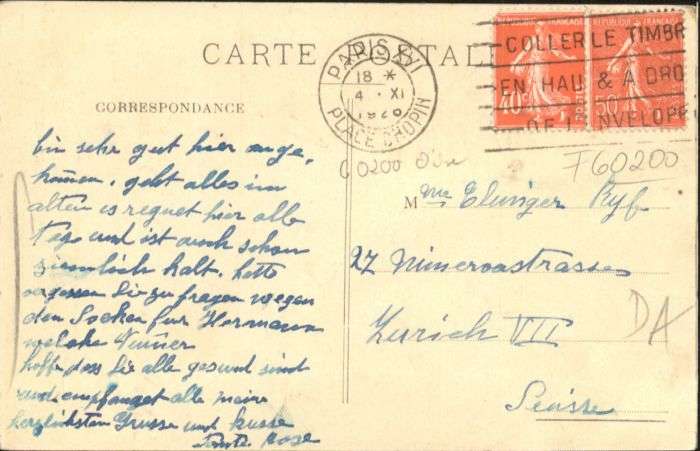 CARTE POSTALE
CORRESPONDANCE
PARIS XVI
18 *
4 · XI
1926
PLACE CHOPIN
COLLER LE TIMBR
EN HAU & A DRO
DE L' NVELOPE
RÉPUBLIQUE FRANÇAISE
40c
50c
F60200
bin sehr gut hier ange,
kommen, geht alles im
alten es regnet hier alle
Tage und ist auch schon
ziemlich kalt. hatte
vergessen Sie zu fragen wegen
den Socken für Hermann
welche Numer
hoffe dass Sie alle gesund sind
und empfanget alle meine
herzlichsten Grüsse und küsse
Tante Rose
Mme Elminger Ryf
27 Minervastrasse
Zurich VII
Suisse
DA